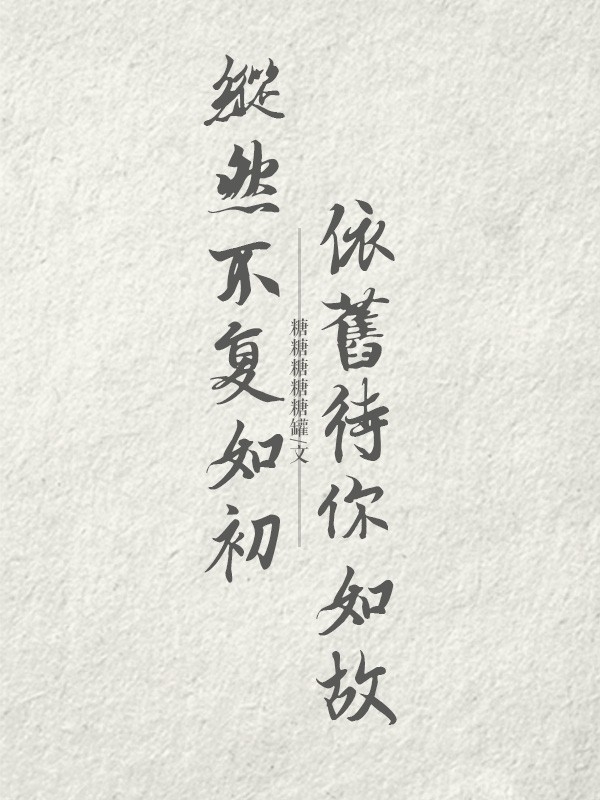 縱然不复如初
糖糖糖糖糖罐/文
依舊待你如故